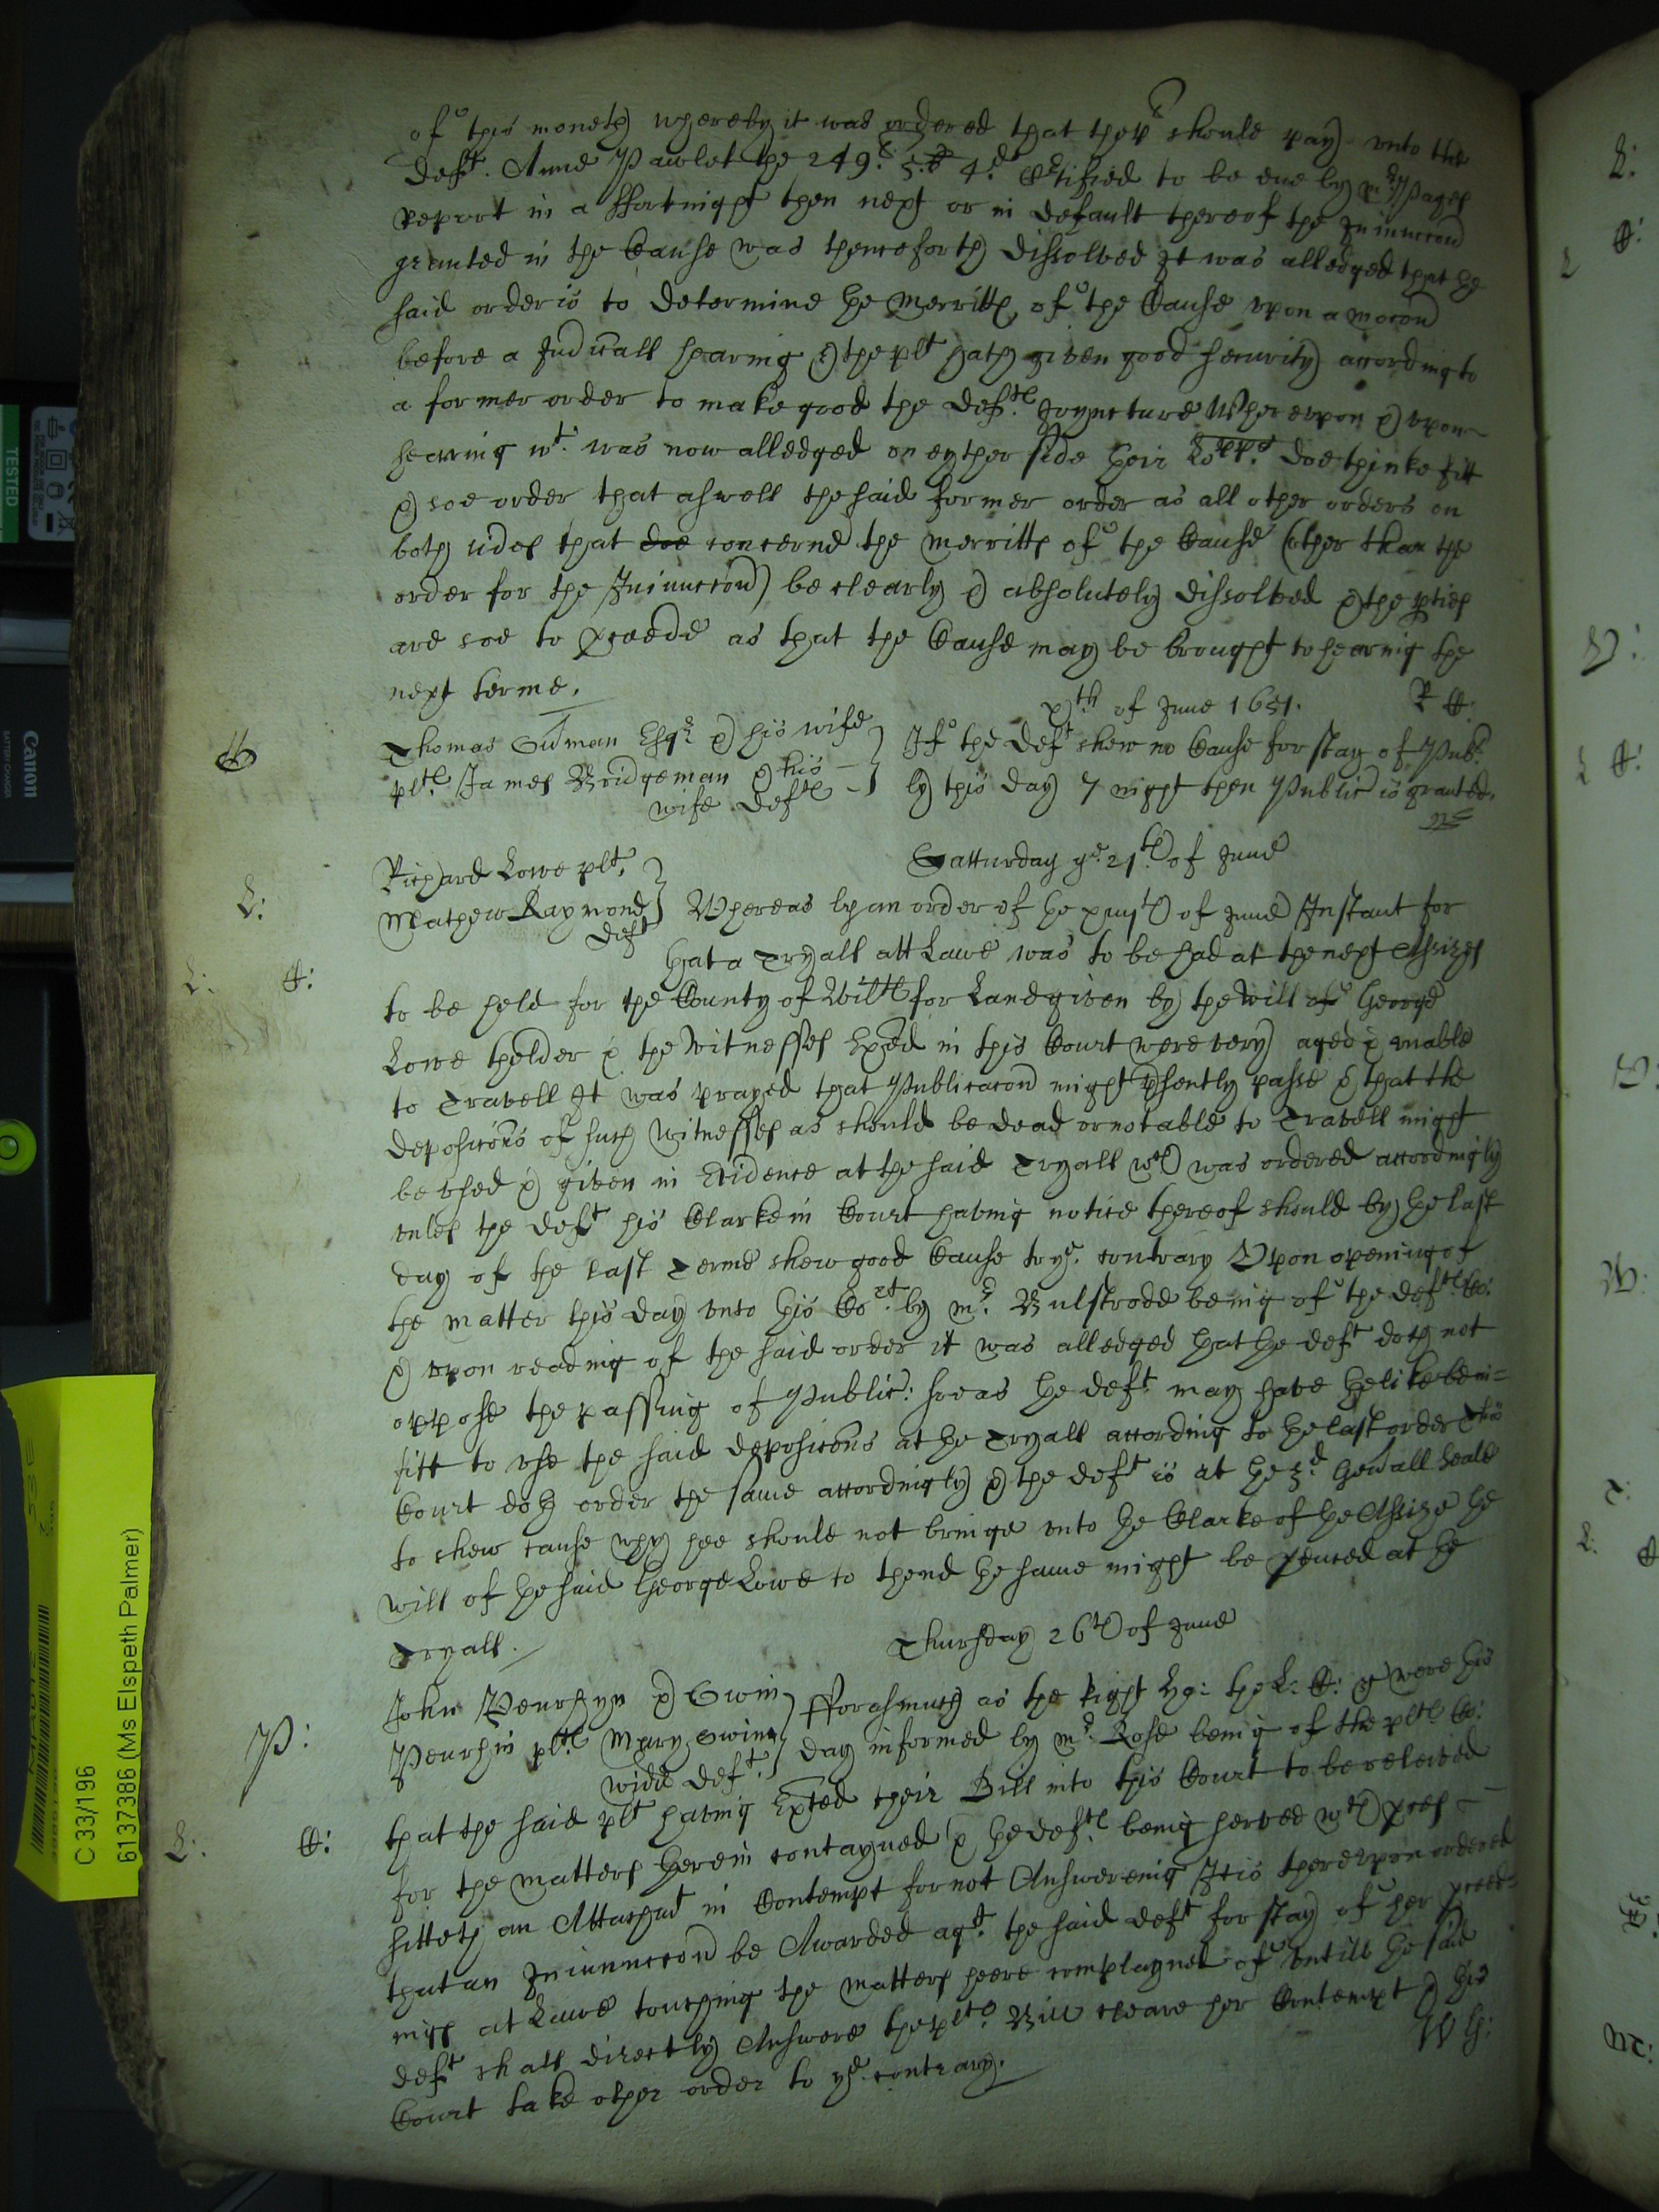 of this moneth whereby it was ordered that they should pay vnto the
Deft. Anne Pawlet the 249l. 5s 4d. Certified to be due by mr. Pages
Report in a ffortnight then next or in default thereof the Iniuncc̄on
granted in the Cause was thenceforth dissolved It was alledged that the
said order is to determine the Merritts of the Cause vpon a moc̄on
before a Judic̄all hearing & the plt hath given good security according to
a former order to make good the Defts. Joyncture Wherevpon & vpon
hearing wt. was now alledged on eyther side their Lopps. doe thinke fitt
& soe order that aswell the said former order as all other orders on
both sides that doe concerne the merritts of the Cause (other than the
order for the Iniuncc̄on) be clearly & absolutely dissolved & the pties
are soe to pceede as that the Cause may be brought to hearing the
next terme.
xth of June 1651. R C:
Thomas Esqr. & his wife
plts. James Bridgeman & his
wife Defts
If the Deft shew no Cause for stay of Publ:
by this day 7 night then Public is granted.
Satturday ye. 21th of June
Richard Lowe plt.
Mathew Raymond
Deft
L:
Whereas by an order of the xiiijth of June Instant for
that a Tryall att Lawe was to be had at the next Assizes
L: C:
to be held for the County of Wilts for Land given by the Will of George
Lowe thelder & the Witnesses Exed in this Court were very aged & vnable
to Travell It was prayed that Publicac̄on might psently passe & that the
deposic̄ons of such Witnesses as should be dead or not able to Travell might
be vsed & given in Evidence at the said Tryall wch was ordered accordingly
vnles the deft his Clarke in Court having notice thereof should by the last
day of the last Terme shew good Cause to ye. contrary Vpon opening of
the matter this day vnto this Cort. by mr. Bulstrode being of the defts. Co:
& vpon reading of the said order it was alledged that the deft doth not
oppose the passing of Public: soe as the deft may have the like beni=
fitt to vse the said deposic̄ons at the Tryall according to the last order This
Court doth order the same accordingly & the deft is at the 3d. Gen̄all Seale
to shew cause why hee should not bringe vnto the Clarke of the Assize the
will of the said George Lowe to thend the same might be pduced at the
Tryall.
Thursday 26th of June
P:
John Penrhyn & Gwin
Penrhin plts. Mary Gwinn
widd deft.
fforasmuch as the right Ho: the L: C: were this
day informed by mr. Rose being of the plts Co:
L: C:
that the said plt having Exted their Bill into this Court to be releived
for the matters therein contayned & the defts. being served wth pces
sitteth an Attachmt in Contempt for not Answereing It is therevpon ordered
that an Iniuncc̄on be Awarded agt. the said deft for stay of her pceed=
ings at Lawe touching the matters heere complayned of vntill the said
deft shall directly Answere the plts. Bill cleare her Contempt & this
Court take other order to ye. contrary.
C 33/196
6137386 (Ms Elspeth Palmer)
Canon
BATTERY CHARGER
TESTED